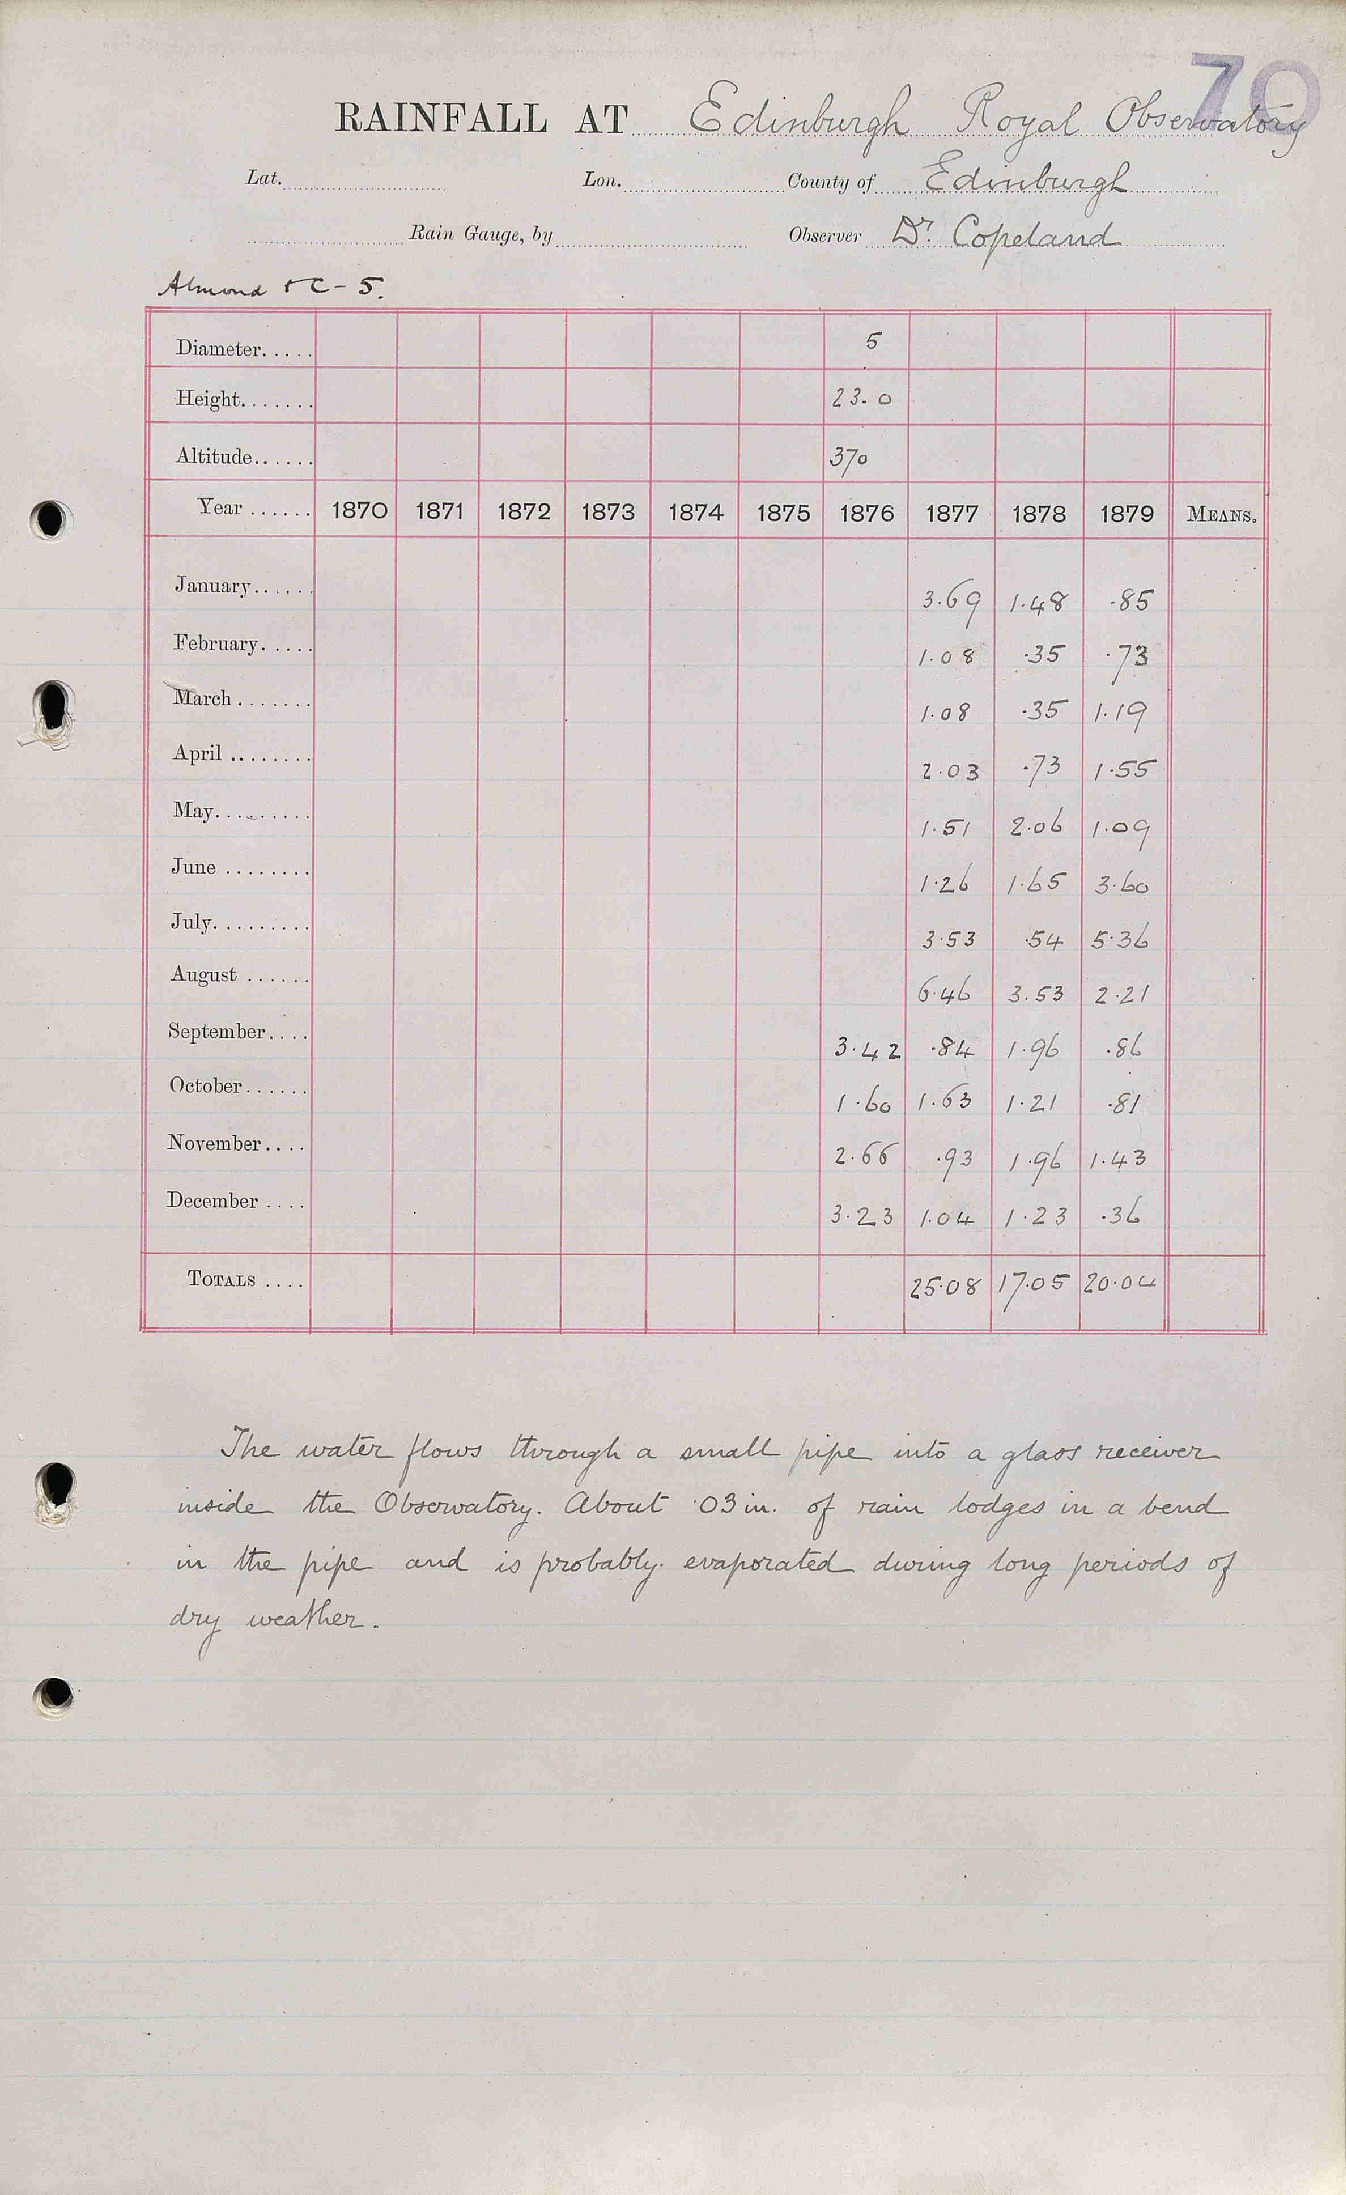 70
RAINFALL AT Edinburgh Royal Observatory
Lat. Lon. County of Edinburgh
Rain Gauge, by Observer Dr. Copeland
Almond & C - 5.
Diameter..... 5
Height....... 23.0
Altitude...... 370
Year ...... 1870 1871 1872 1873 1874 1875 1876 1877 1878 1879 MEANS.
January...... 3.69 1.48 .85
February..... 1.08 .35 .73
March ....... 1.08 .35 1.19
April ........ 2.03 .73 1.55
May......... 1.51 2.06 1.09
June ........ 1.26 1.65 3.60
July......... 3.53 .54 5.36
August ...... 6.46 3.53 2.21
September.... 3.42 .84 1.96 .86
October...... 1.60 1.63 1.21 .81
November.... 2.66 .93 1.96 1.43
December .... 3.23 1.04 1.23 .36
TOTALS .... 25.08 17.05 20.04
The water flows through a small pipe into a glass receiver
inside the Observatory. About .03 in. of rain lodges in a bend
in the pipe and is probably evaporated during long periods of
dry weather.